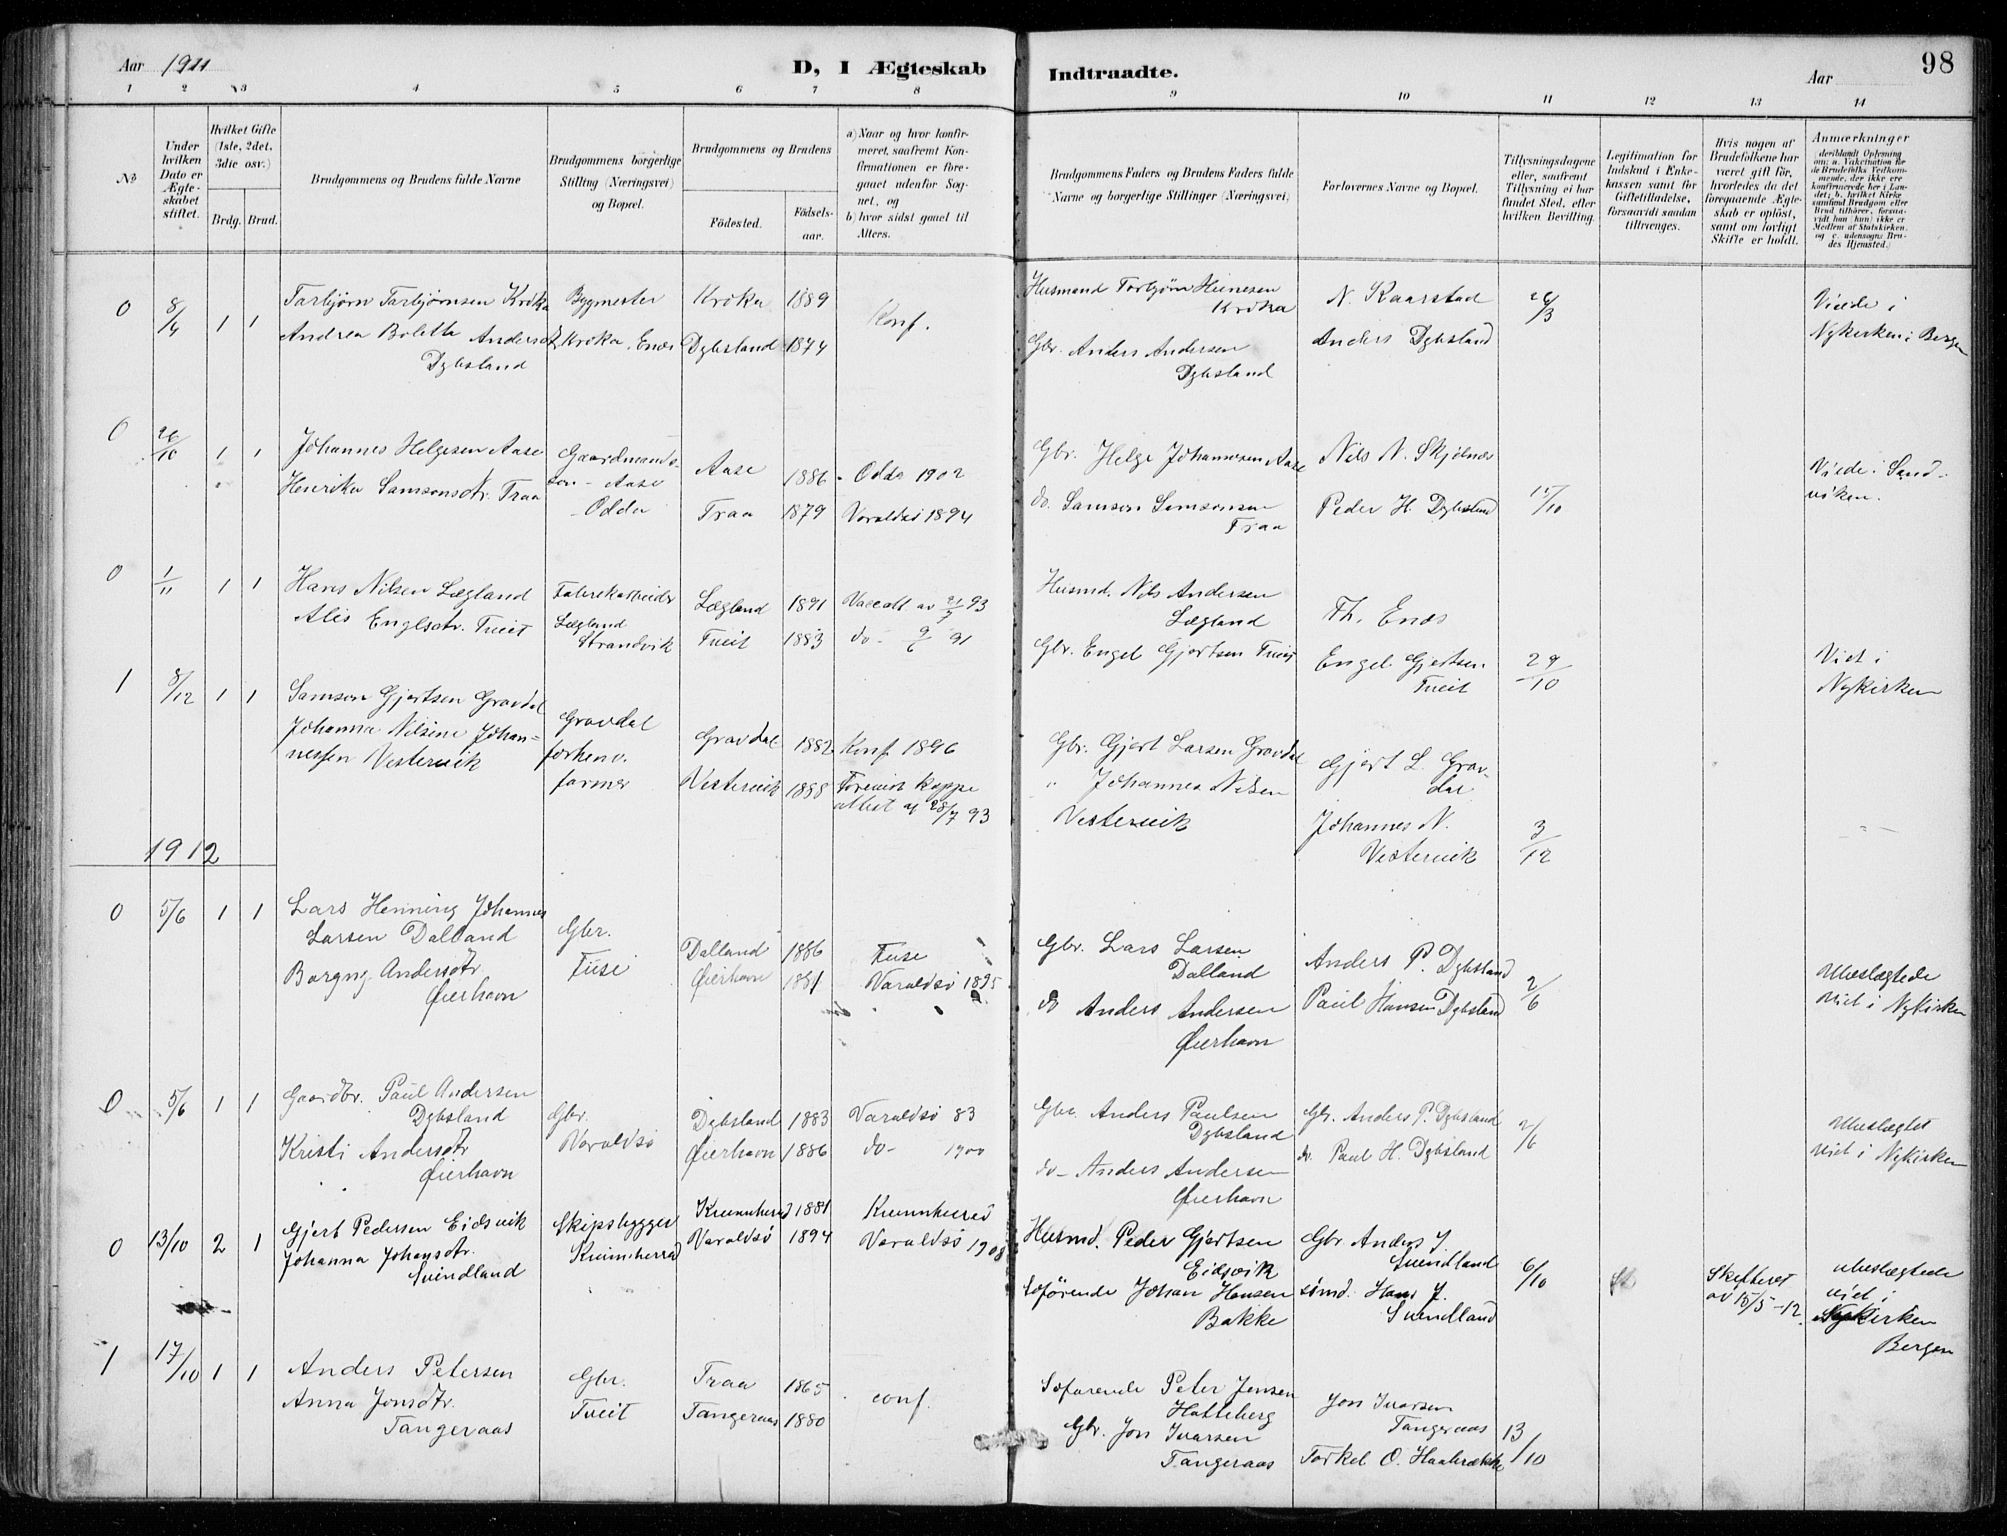 98
Aar 1911
D, I Ægteskab Indtraadte.
Aar
1 2 3 4 5 6 7 8 9 10 11 12 13 14
No
Under hvilken Dato er Ægteskabet stiftet.
Hvilket Gifte (1ste, 2det, 3die osv.)
Brdg. Brud.
Brudgommens og Brudens fulde Navne
Brudgommens borgerlige Stilling (Næringsvei) og Bopæl.
Brudgommens og Brudens
Fødested.
Fødselsaar.
a) Naar og hvor konfirmeret, saafremt Konfirmationen er foregaaet udenfor Sognet, og
b) hvor sidst gaaet til Alters.
Brudgommens Faders og Brudens Faders fulde Navne og borgerlige Stillinger (Næringsvei)
Forlovernes Navne og Bopæl.
Tillysningsdagene eller, saafremt Tillysning ei har fundet Sted, efter hvilken Bevilling.
Legitimation for Indskud i Enkekassen samt for Giftetilladelse, forsaavidt saadan tiltrænges.
Hvis nogen af Brudefolkene har været gift før, hvorledes da det foregaaende Ægteskab er opløst, samt om lovligt Skifte er holdt.
Anmærkninger
(deriblandt Oplysning om: a. Vakcination for de Brudefolks Vedkommende, der ikke ere konfirmerede her i Landet; b. hvilket Kirkesamfund Brudgom eller Brud tilhører, forsaavidt han (hun) ikke er Medlem af Statskirken, og c. udensogns Brudes Hjemsted.)
0 8/4 1 1
Torbjørn Torbjørnsen Kroka
Andrea Boletta Andersd.
Dybsland
Bygmester
Kroka, Enæs
Kroka 1889
Dybsland 1874
Konf.
Husmand Torbjørn
Kroka
Gbr. Anders Andersen
Dybsland
N. Kaarstad
Anders Dybsland
26/3
Viede i
Nykirken i Bergen
0 26/10 1 1
Johannes Helgesen Aase
Henrika Samsonsdtr. Traa
Gaardmands-
søn - Aase
Odda
Aase 1886
Traa 1879
Odda 1902
Varaldsø 1894
Gbr. Helge Johannesen Aase
do. Samson Samsonsen
Traa
Nils N. Skjelnæs
Peder H. Dybsland
15/10
Viede i Sand-
viken.
0 1/11 1 1
Hans Nilsen Lægland
Alis Englsdtr. Tveit
Fabrikarbeider
Lægland
Strandvik
Lægland 1891
Tveit 1883
Vaccatt av 21/7 93
do - 9/6 91
Husmd. Nils Andersen
Lægland
Gbr. Engel Gjertsen Tveit
Th. Enæs
Engel Gjertsen
Tveit
29/10
Viet i
Nykirken
1 8/12 1 1
Samson Gjertsen Gravdal
Johanna Nilsine Johan-
nessen Vestervik
Gravdal
forhenv.
farmer
Gravdal 1882
Vestervik 1888
Konf 1896
Forevist koppe
attest af 28/7 93
Gbr. Gjert Larsen Gravdal
" Johannes Nilsen
Vestervik
Gjert L. Grav-
dal
Johannes N.
Vestervik
3/12
1912
0 5/6 1 1
Lars Henning Johannes
Larsen Dalland
Borgny Andersdtr
Øierhavn
Gbr.
Fuse
Dalland 1886
Øierhavn 1881
Fuse
Varaldsø 1895
Gbr. Lars Larsen
Dalland
do Anders Andersen
Øierhavn
Anders P. Dybsland
Paul Hansen Dybsland
2/6
Ubeslægtede
viet i Nykirken
0 5/6 1 1
Gaardbr. Paul Andersen
Dybsland
Kristi Andersdtr
Øierhavn
Gbr.
Varaldsø
Dybsland 1883
Øierhavn 1886
Varaldsø 83
do - 1900
Gbr Anders Paulsen
Dybsland
do - Anders Andersen
Øierhavn
Gbr. Anders P. Dybsland
do. Paul H. Dybsland
2/6
Ubeslægtet
viet i Nykirken
0 13/10 2 1
Gjert Pedersen Eidsvik
Johanna Johansdtr.
Svindland
Skipsbygger
Kvinnherrad
Kvinnherad 1881
Varaldsø 1894
Kvinnherred
Varaldsø 1908
Husmd. Peder Gjertsen
Eidsvik
Søførende Johan Hansen
Bakke
Gbr Anders J.
Svendland
sømd. Hans J.
Svendland
6/10
Skifteret
av 15/5-12.
ubeslægtede
viet i
Nykirken
Bergen
1 17/10 1 1
Anders Petersen
Anna Jonsdtr.
Tangeraas
Gbr.
Tveit
Traa 1865
Tangeraas 1880
conf.
Søfarende Peter Jensen
Hatteberg
Gbr. Jon Ivarsen
Tangeraas
Jon Ivarsen
Tangeraas
Torkel O.
13/10